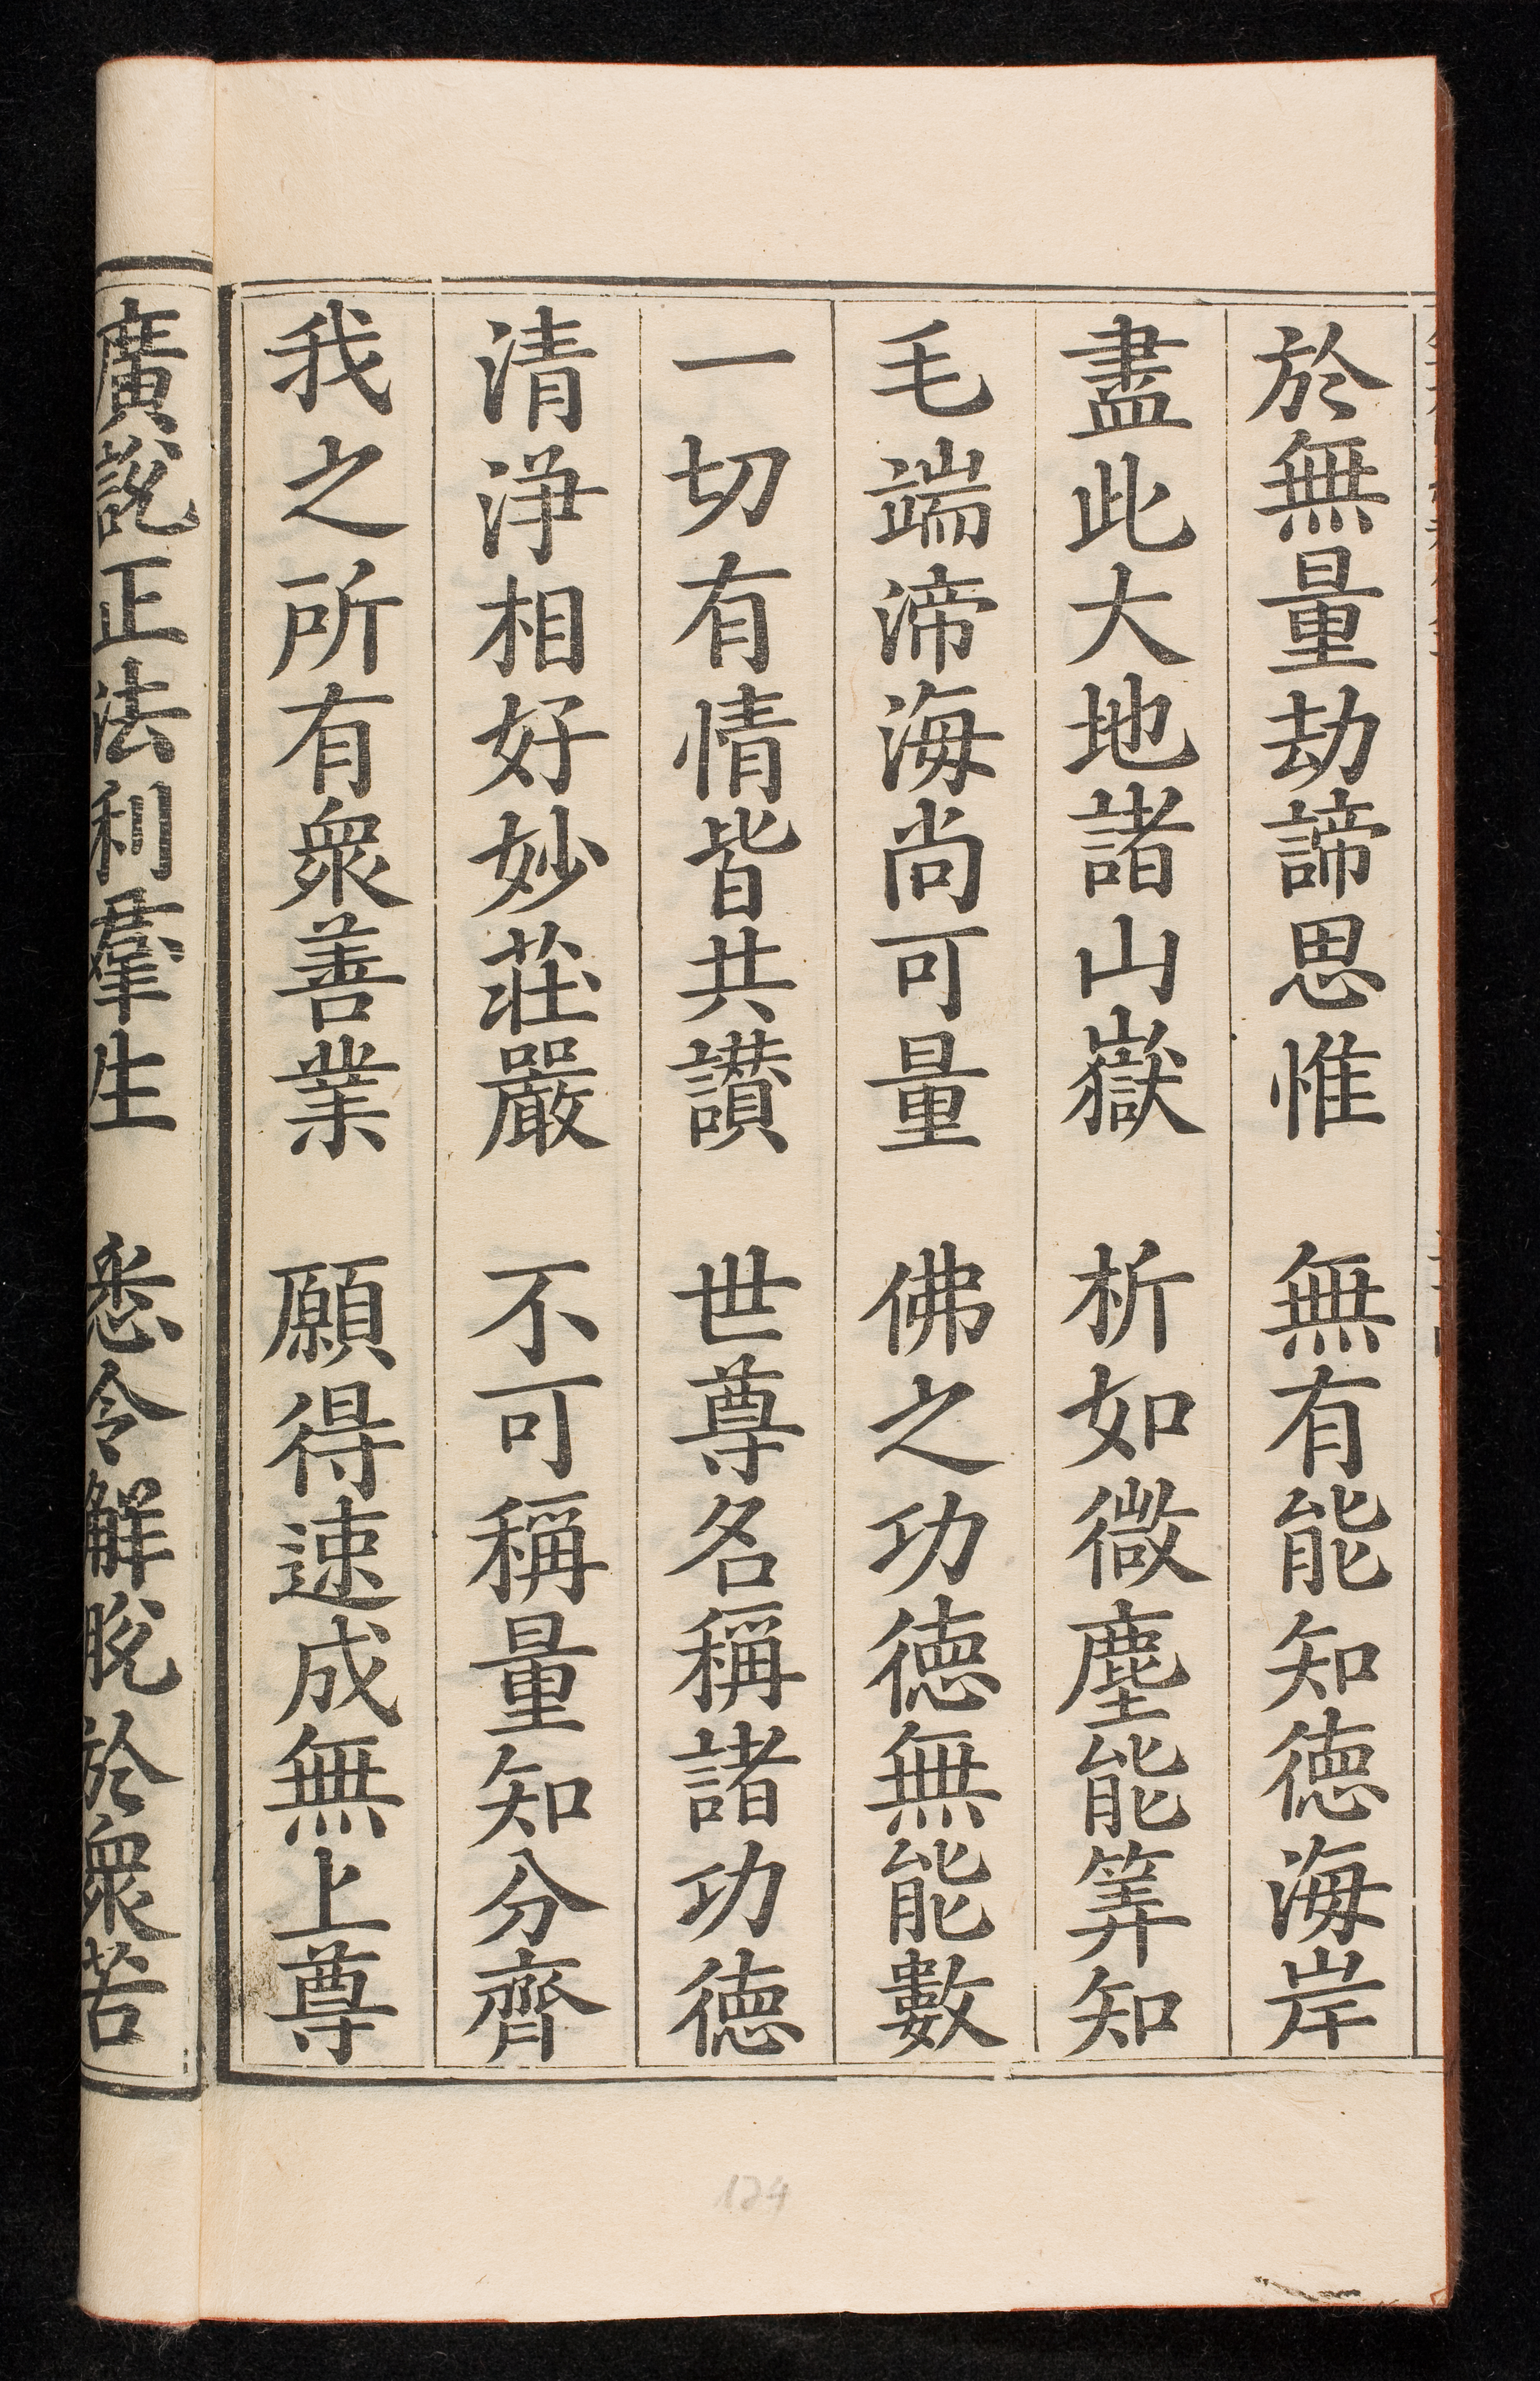 於無量劫諦思惟　無有能知德海岸
盡此大地諸山嶽　析如微塵能筭知
毛端渧海尚可量　佛之功德無能數
一切有情皆共讃　世尊名稱諸功德
清淨相好妙莊嚴　不可稱量知分齊
我之所有衆善業　願得速成無上尊
廣說正法利羣生　悉令解脫於衆苦
124